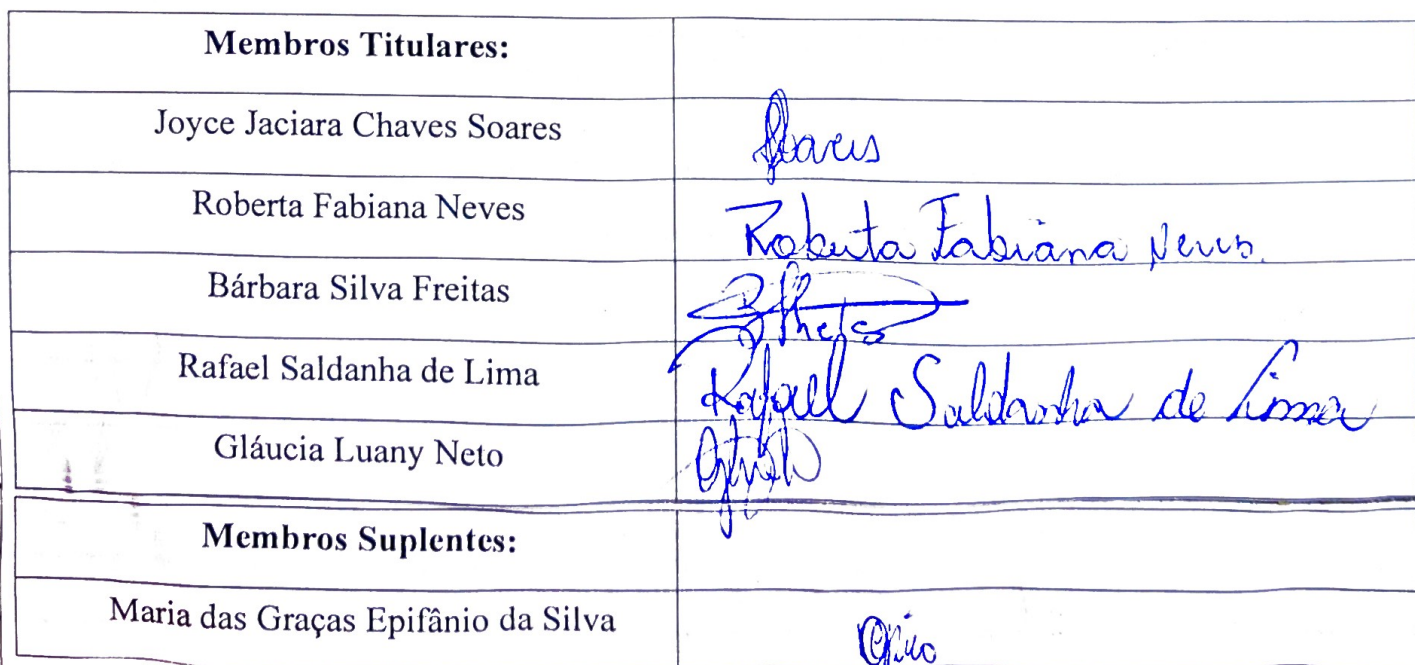 Membros Titulares:
Joyce Jaciara Chaves Soares
Soares
Roberta Fabiana Neves
Roberta Fabiana Neves.
Bárbara Silva Freitas
Rafael Saldanha de Lima
Rafael Saldanha de Lima
Gláucia Luany Neto
Membros Suplentes:
Maria das Graças Epifânio da Silva